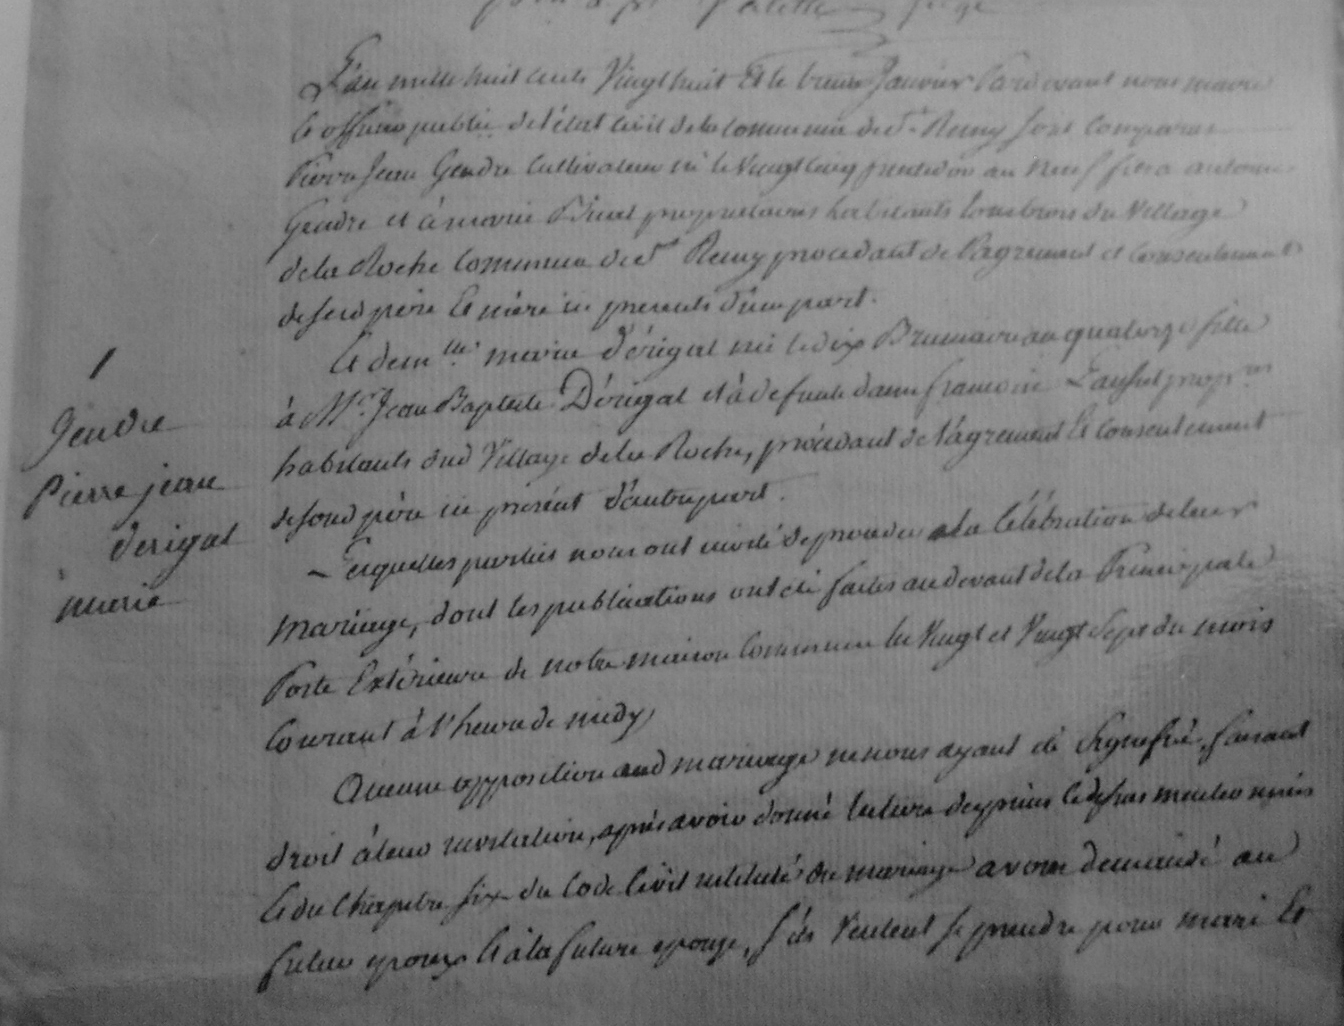 L'an mille huit cents Vingt huit Et le trente Janvier Pardevant nous maire
et officier public de l'état Civil de la Commune de St Remy sont Comparus
Pierre Jean Gendre Cultivateur né le Vingt cinq an Neuf fils à antoine
Gendre et à marie propriétaires habitants du Village
de la Roche Commune de St Remy procédant de l'agrement et Consentement
de sesd père Et mère ici présents d'une part.
Et dem.lle marie Dérigal née le dix Brumaire an quatorze fille
à Mr Jean Baptiste Dérigal et à defunte dame francoise propres
habitants dud Village de la Roche, procédant de l'agrement Et Consentement
de sond père ici présent d'autre part.
Lesquelles parties nous ont invité de procéder à la Célébration de leur
Mariage, dont les publications ont été faites au devant de la Principale
Porte Extérieure de notre maison Commune les Vingt et Vingt Sept du mois
Courant à l'heure de midy,
Aucune opposition aud mariage ne nous ayant été Signifié, faisant
droit à leur invitation, après avoir donné lecture des pièces Ci dessus mentionnées
Et du Chapitre six du Code Civil intitulé du mariage avons demandé au
futur epoux Et à la future epouse, s'ils Veulent se prendre pour mari Et
1
Gendre
Pierre jean
derigal
marie